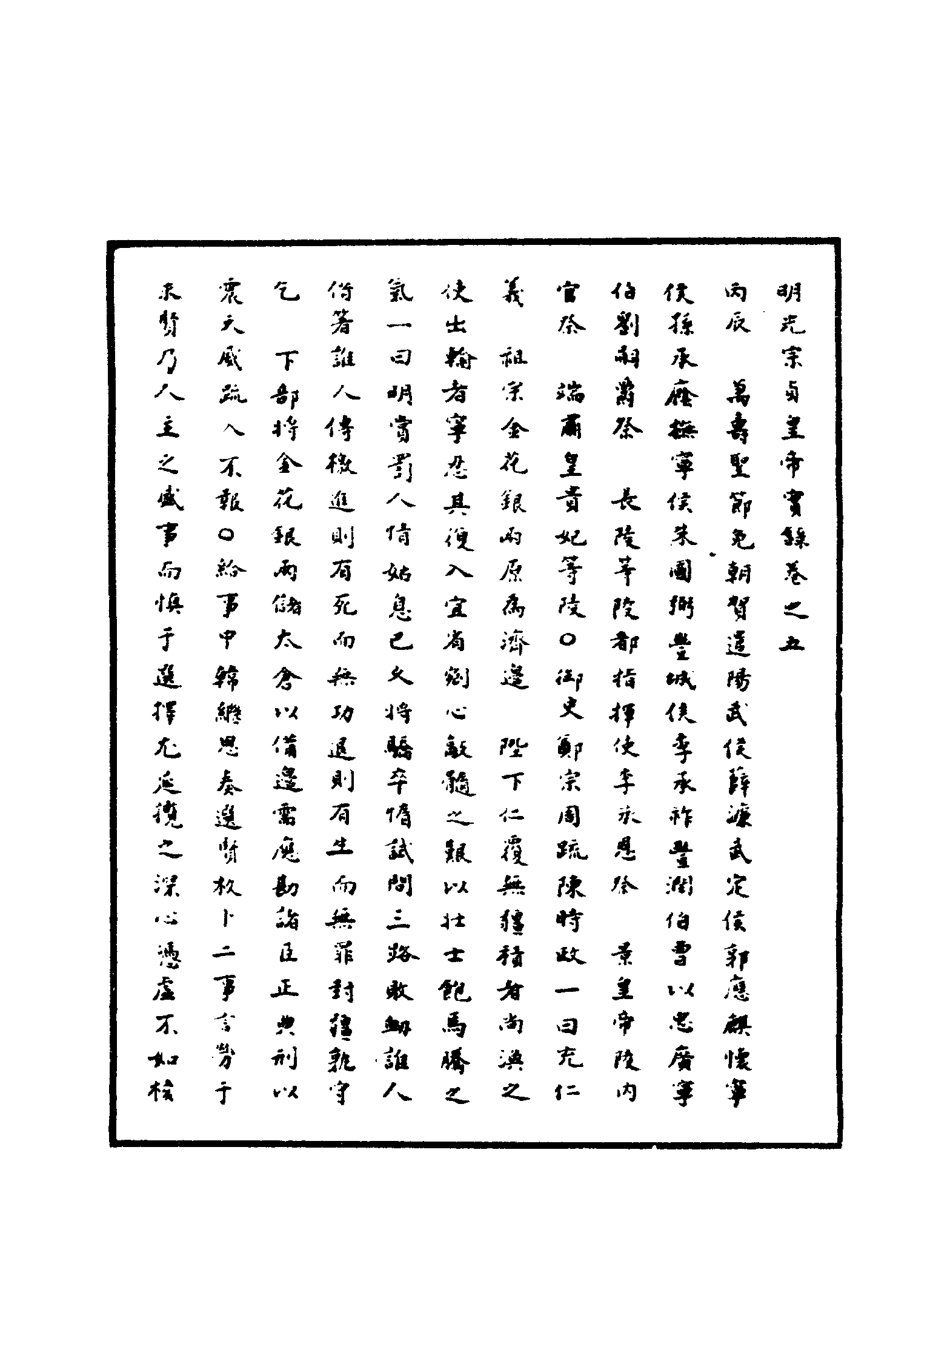 明光宗貞皇帝實錄卷之五
丙辰　萬壽聖節免朝賀遣陽武侯薛濂武定侯郭應麒懷寧
侯孫承廕撫寧侯朱國弼豐城侯李承祚豐潤伯曹以忠廣寧
伯劉嗣爵祭　長陵等陵都指揮使李承恩祭　景皇帝陵內
官祭　端肅皇貴妃等陵○御史鄭宗周疏陳時政一曰充仁
義　祖宗金花銀兩原為濟邊　陛下仁覆無疆積者尚渙之
使出輸者寧忍其復入宜省剜心敲髓之艱以壯士飽馬騰之
氣一曰明賞罰人情姑息已久將驕卒惰試問三路敗衂誰人
偹著誰人傳檄進則有死而無功退則有生而無罪封疆孰守
乞　下部將金花銀兩儲太倉以備邊需應勘諸臣正典刑以
震天威疏入不報○給事中韓繼思奏選賢枚卜二事言勞于
求賢乃人主之盛事而慎于選擇尤延攬之深心憑虛不如核